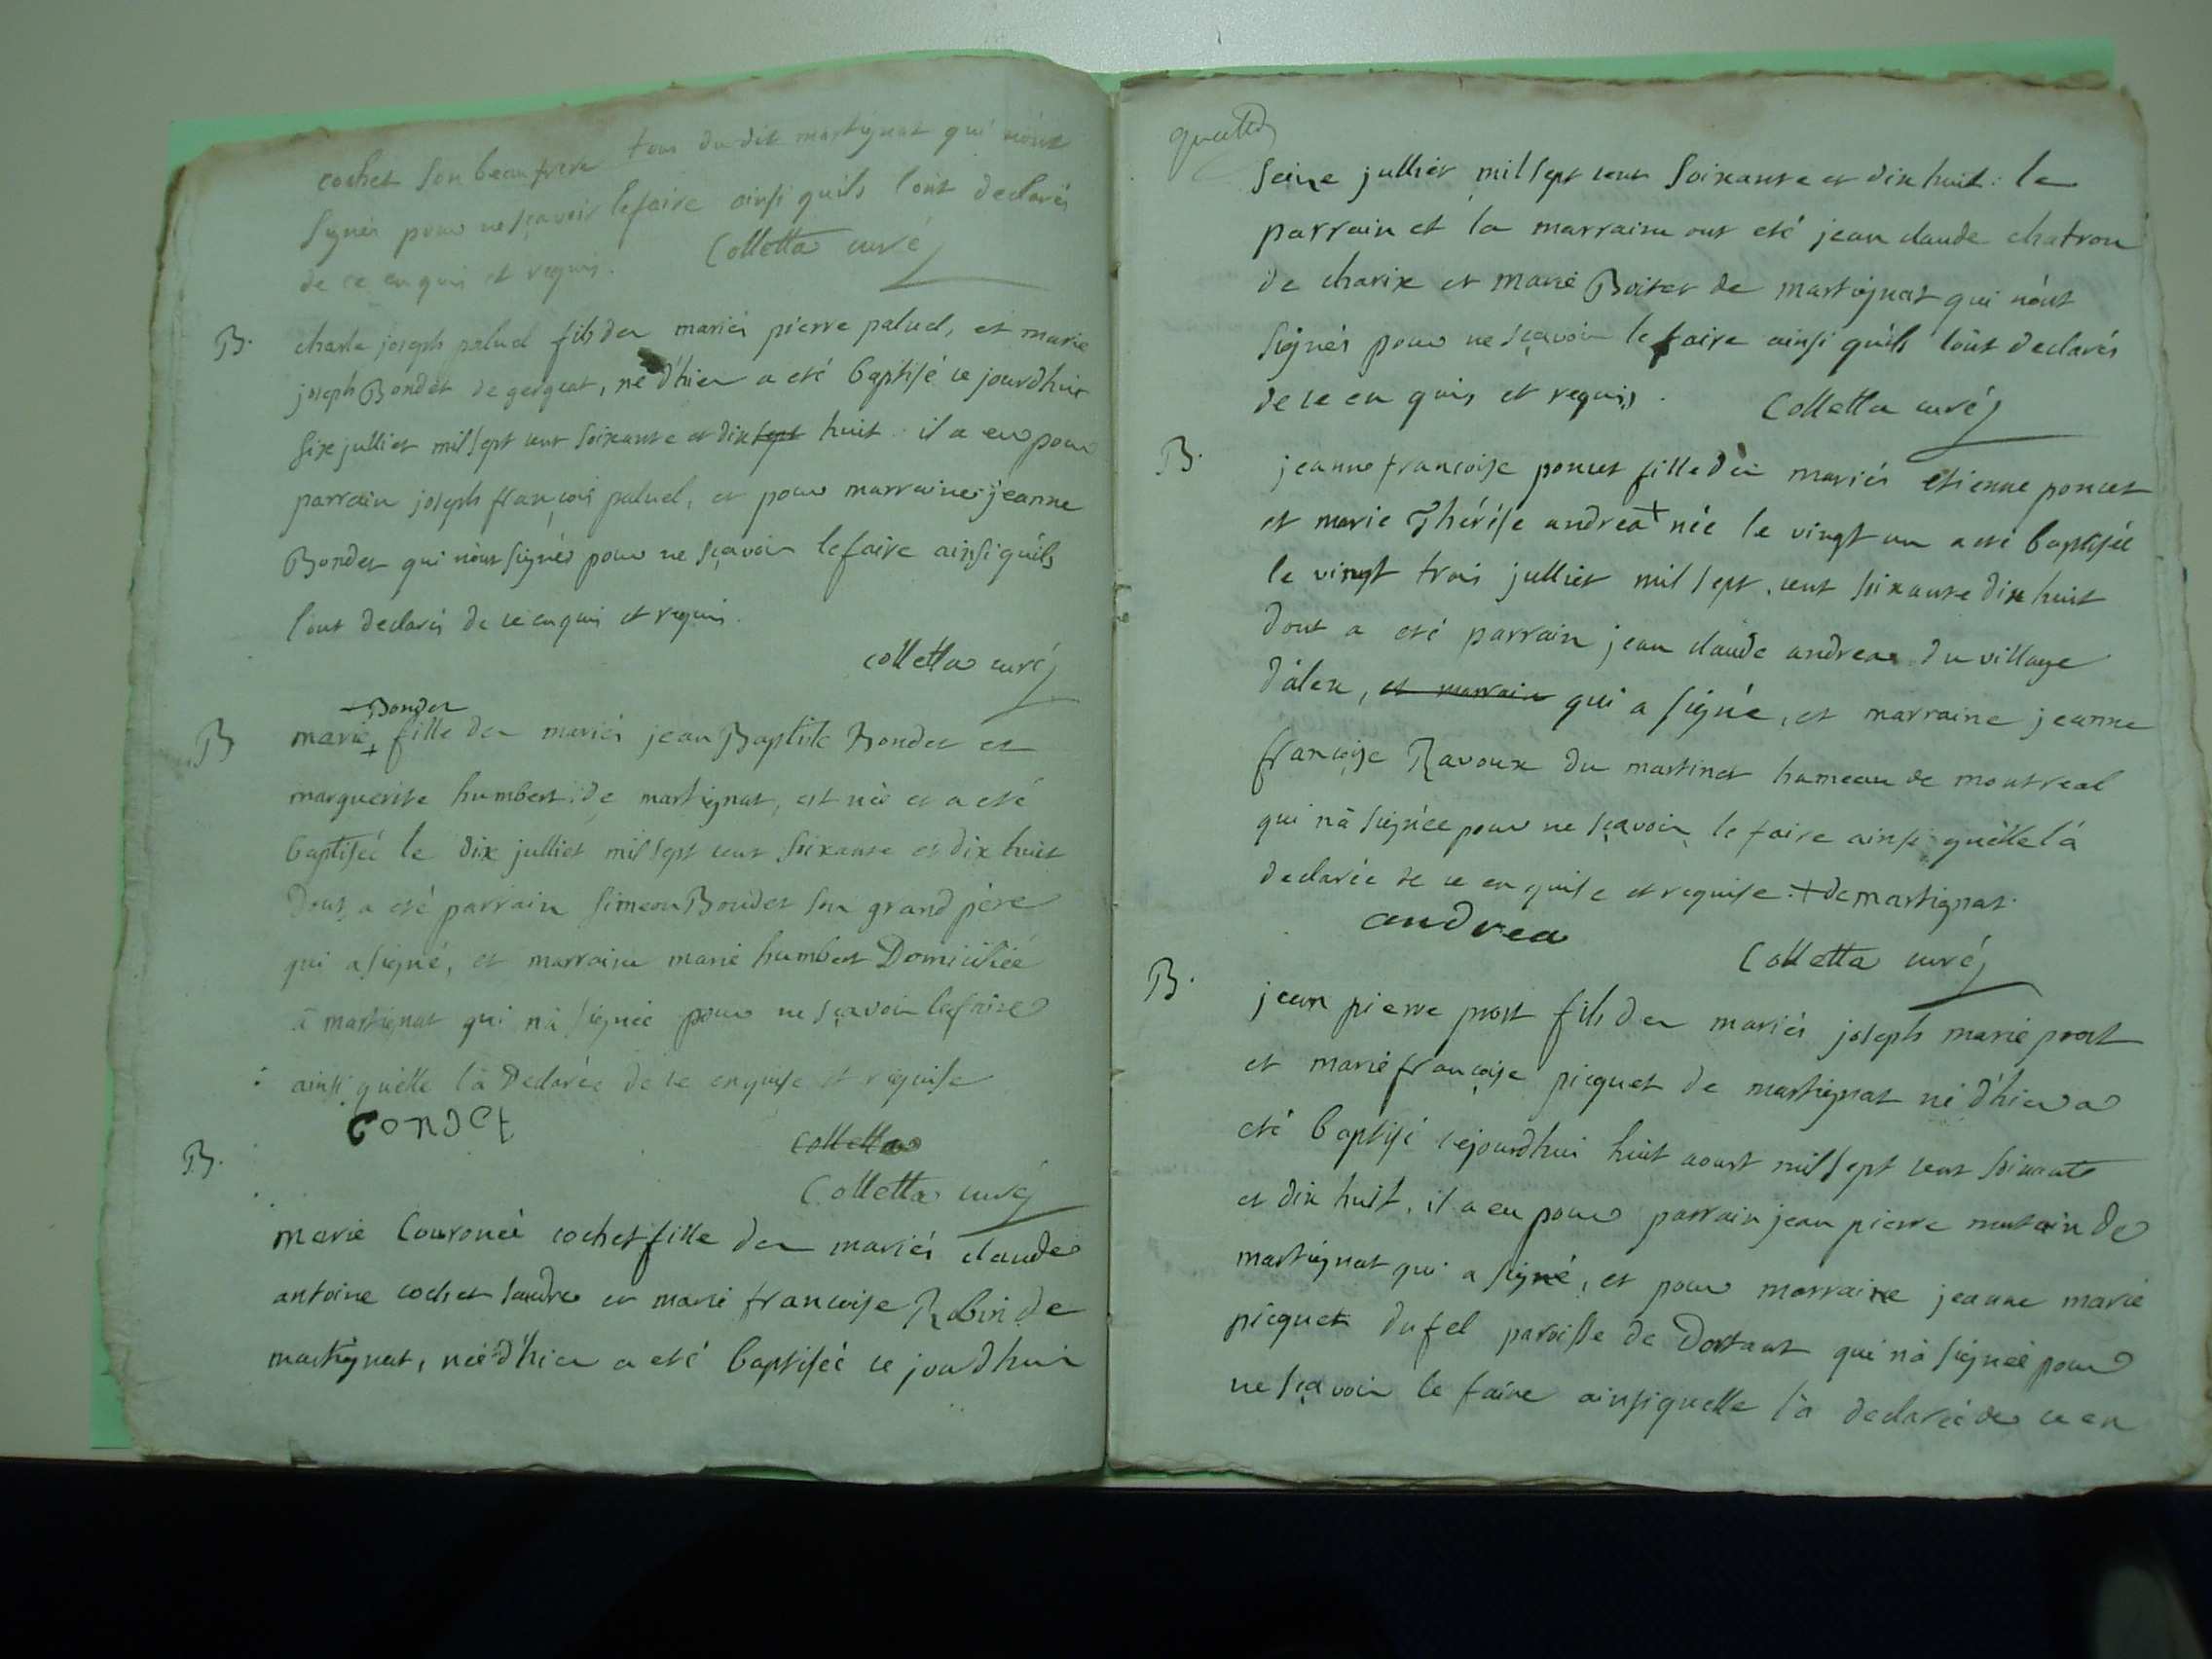 cochet son beau frere tous du dit martignat qui nónt
signés pour ne sçavoir le faire ainsi quils lónt declarés
de ce enquis et requis. Colletta curé
B. charle joseph palud fils des mariés pierre palud, et marie
joseph Bondet de geigeat, né d'hier a eté baptisé ce jourdhuit
six julliet mil sept cent soixante et dix sept huit il a eu pour
parrain joseph françois palud, et pour marraine jeanne
Bondet qui nónt signés pour ne sçavoir le faire ainsi quils
lónt declarés de ce enquis et requis.
colletta curé
Bondet
B marie + fille des mariés jean Baptiste Bondet et
marguerite humbert de martignat, est née et a eté
baptisée le dix julliet mil sept cent soixante et dix huit
dont a eté parrain simeon Bondet son grand père
qui a signé, et marraine marie humbert Domiciliée
à martignat qui n'a signée pour ne sçavoir le faire
ainsi qu'elle l'a Declarée de ce enquise et requise
Condet
colletta
B. Colletta curé
marie Couronée cochet fille des mariés claude
antoine cochet landre et marie françoise Robin de
martignat, née d'hier a eté baptisée ce jourdhui
quatre
seize julliet mil sept cent soixante et dix huit : le
parrain et la marraine ont eté jean claude chatron
de charix et marie Boitet de martignat qui nónt
signés pour ne sçavoir le faire ainsi quils lónt declarés
de ce en quis et requis. Colletta curé
B. jeanne françoise poncet fille des mariés etienne poncet
et marie Thérése andrea + née le vingt un a eté baptisée
le vingt trois julliet mil sept cent soixante dix huit
dont a eté parrain jean claude andrea du village
d'alex, et marrain qui a signé, et marraine jeanne
françoise Ravoux du martinet hameau de montreal
qui n'a signée pour ne sçavoir le faire ainsi qu'elle l'a
declarée de ce en quise et requise. + de martignat.
andrea
Colletta curé
B. jean pierre prost fils des mariés joseph marie prost
et marie françoise picquet de martignat né d'hier a
eté baptisé cejourdhui huit aoust mil sept cent soixante
et dix huit, il a eu pour parrain jean pierre mutain de
martignat qui a signé, et pour marraine jeanne marie
picquet du fel paroisse de Dortant qui n'a signée pour
ne sçavoir le faire ainsi quelle l'a declarée de ce en